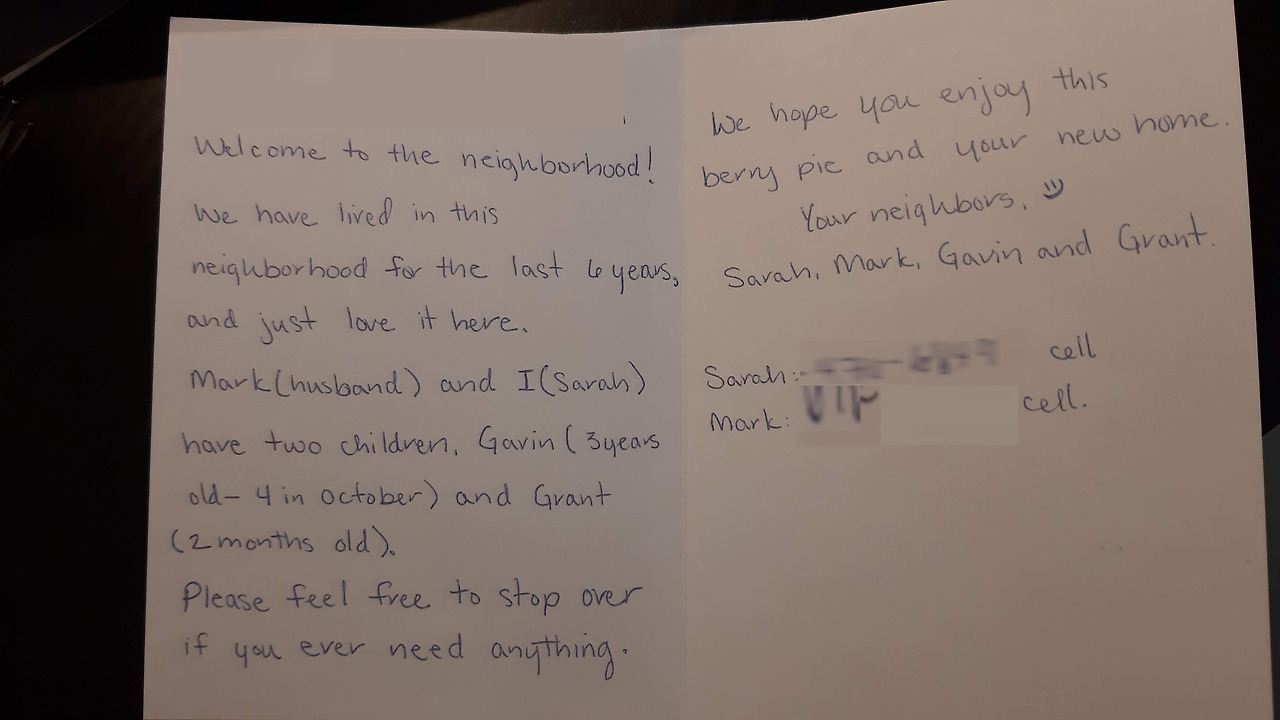 Welcome to the neighborhood!
We have lived in this
neighborhood for the last 6 years,
and just love it here.
Mark (husband) and I (Sarah)
have two children, Gavin (3 years
old- 4 in October) and Grant
(2 months old).
Please feel free to stop over
if you ever need anything.
We hope you enjoy this
berry pie and your new home.
Your neighbors, :)
Sarah, Mark, Gavin and Grant.
Sarah: cell
Mark: cell.